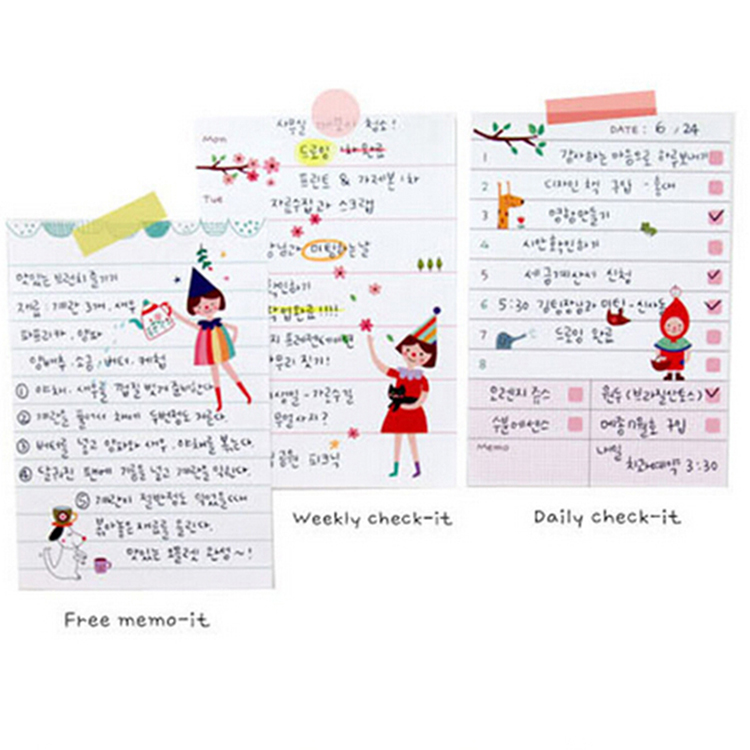 맛있는 브런치 즐기기
재료 : 계란 3개. 새우
파프리카. 양파
양배추. 소금. 버터. 케첩
① 야채. 새우를 껍질 벗겨 준비한다.
② 계란을 풀어서 체에 두번정도 거른다.
③ 버터를 넣고 양파와 새우. 야채를 볶는다.
④ 달궈진 팬에 기름을 넣고 계란을 익힌다.
⑤ 계란이 절반정도 익었을때
볶아놓은 재료를 올린다.
맛있는 오믈렛 완성~!
Free memo-it
사무실 청소!
Mon
드로잉 1차 완료
프린트 & 가제본 1차
Tue
자료수집과 스크랩
미팅하는날
확인하기
작업완료!!!!
무리 짓기!
공원 피크닉
Weekly check-it
DATE : 6 / 24
1 감사하는 마음으로 하루보내기
2 디자인 책 구입 - 홍대
3 명함만들기
4 시안확인하기
5 세금계산서 신청
6 5:30 김팀장님과 미팅 - 신사동
7 드로잉 완료
8
오렌지 쥬스
원두 (브라질산토스)
수분에센스
메종 7월호 구입
Memo
내일
치과예약 3:30
Daily check-it